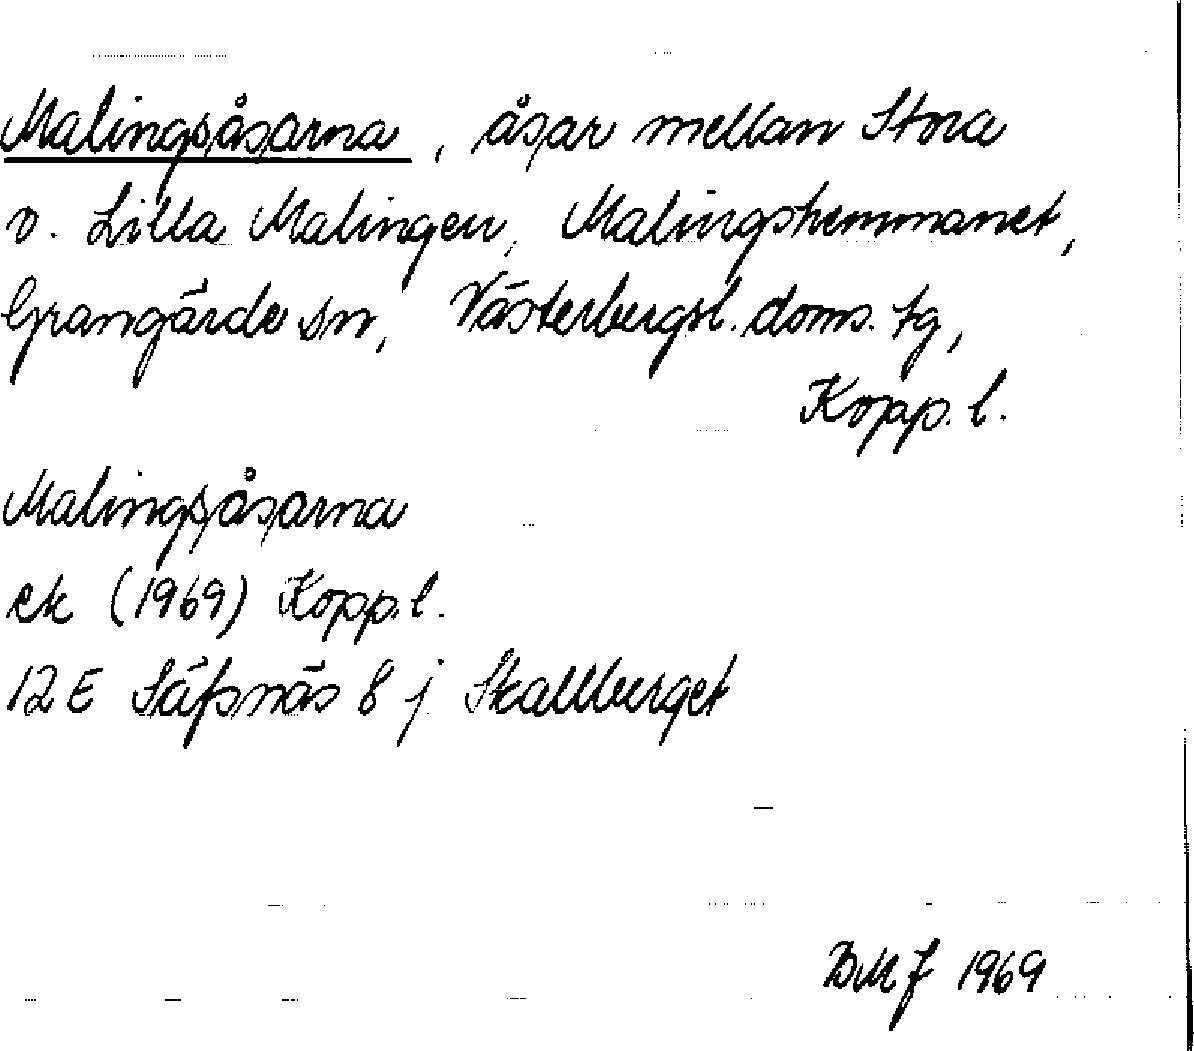 Malingsåsarna, åsar mellan Stora
o. Lilla Malingen, Malingshemmanet,
Grangärde sn, Västerbergsl. doms. tg,
Kopp. l.
Malingsåsarna
ek (1969) Kopp. l.
12E Säfsnäs 8 j Skallberget
BMJ 1969